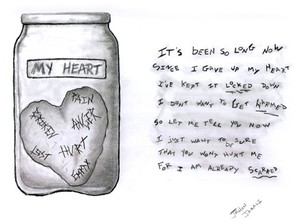 MY HEART
PAIN
BROKEN
ANGER
HURT
LOST
IT'S BEEN SO LONG NOW
SINCE I GAVE UP MY HEART
I'VE KEPT IT LOCKED DOWN
I DON'T WANT TO GET HARMED
SO LET ME TELL YOU NOW
I JUST WANT TO BE SURE
THAT YOU WON'T HURT ME
FOR I AM ALREADY SCARRED